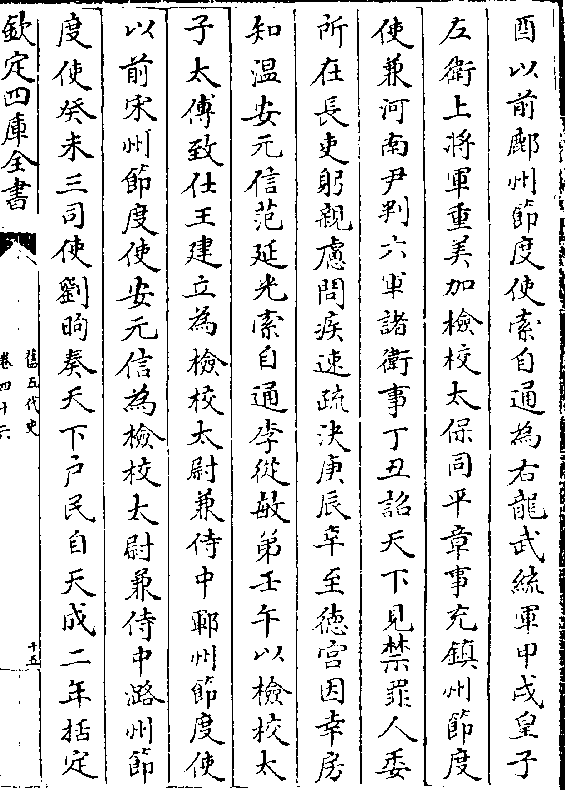 酉以前鄜州節度使索自通為右龍武統軍甲戌皇子
左衛上將軍重美加檢校太保同平章事充鎮州節度
使兼河南尹判六軍諸衛事丁丑詔天下見禁罪人委
所在長吏躬親慮問疾速疏決庚辰幸至德宮因幸房
知溫安元信范延光索自通李從敏第壬午以檢校太
子太傅致仕王建立為檢校太尉兼侍中鄆州節度使
以前宋州節度使安元信為檢校太尉兼侍中潞州節
度使癸未三司使劉昫奏天下戶民自天成二年括定
欽定四庫全書
舊五代史
卷四十六
十五